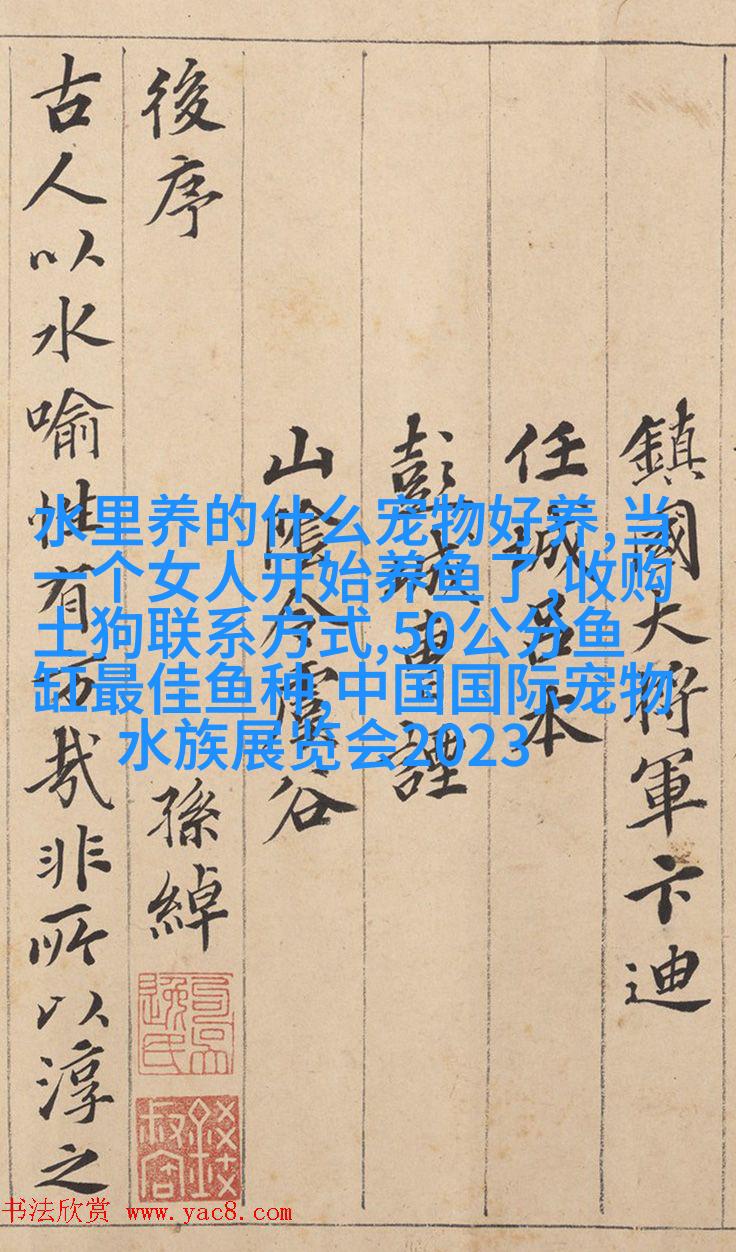 鎮國大將軍卞迪
任城呂本
彭城曹諲
山陰令虞谷
後序 孫綽
古人以水喻性有旨哉非所以淳之
水里养的什么宠物好养,当
一个女人开始养鱼了,收购
土狗联系方式,50公分鱼
缸最佳鱼种,中国国际宠物
水族展览会2023
书法欣赏 www.yac8.com